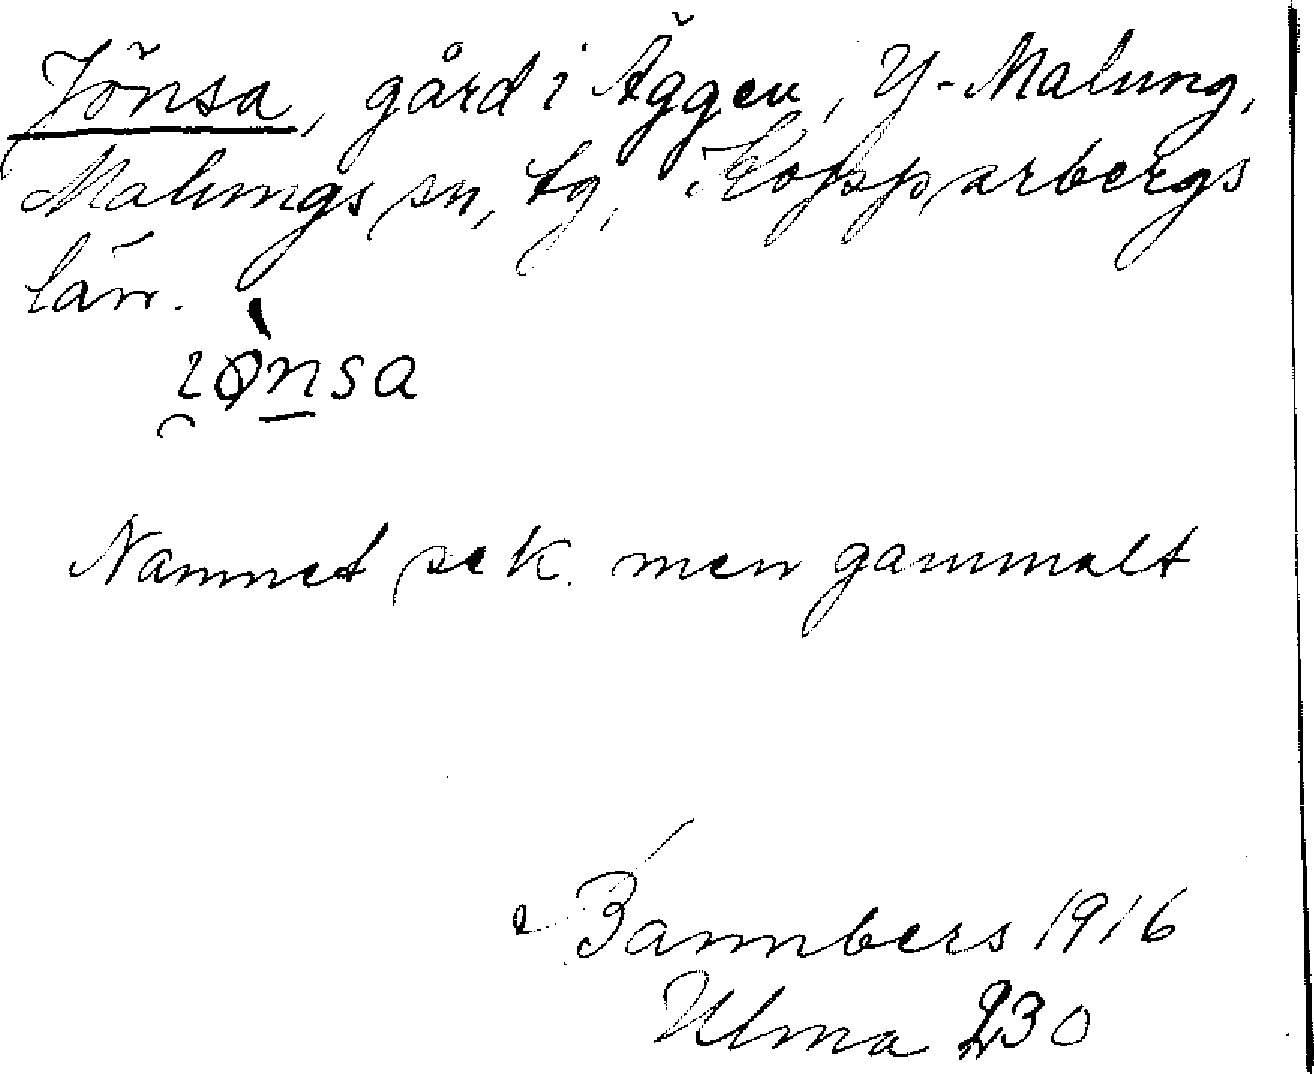 Jönsa, gård i Äggen, Y-Malung,
Malungs sn, tg, Kopparbergs
län.
ɩ̯ønsa
Namnet sek. men gammalt
Bannbers 1916
Ulma 230